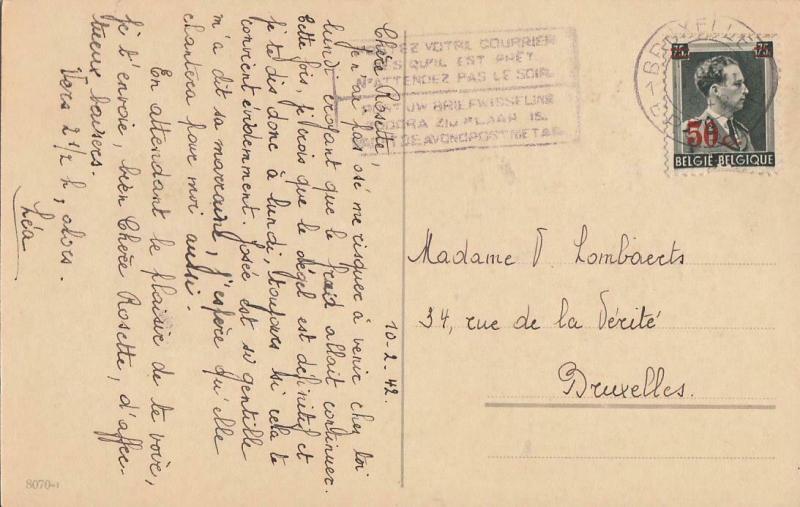 10-2-42.
Chère Rosette,
Je n'ai pas osé me risquer à venir chez toi
lundi croyant que le froid allait continuer.
Cette fois, je crois que le dégel est définitif et
je te dis donc à lundi, toujours si cela te
convient évidemment. Josée est si gentille
m'a dit sa marraine, j'espère qu'elle
chantera pour moi aussi.
En attendant le plaisir de te voir,
je t'envoie, bien Chère Rosette, d'affec-
tueux baisers.
Vers 2 1/2 h, alors.
Léa
8070-1
VOTRE COURRIER
QU'IL EST PRÊT
N'ATTENDEZ PAS LE SOIR
UW BRIEFWISSELING
ZIJ KLAAR IS.
DE AVONDPOST NIET AF.
BRUXELLES
75c 75c
50
BELGIË-BELGIQUE
Madame V. Lombaerts
34, rue de la Vérité
Bruxelles.